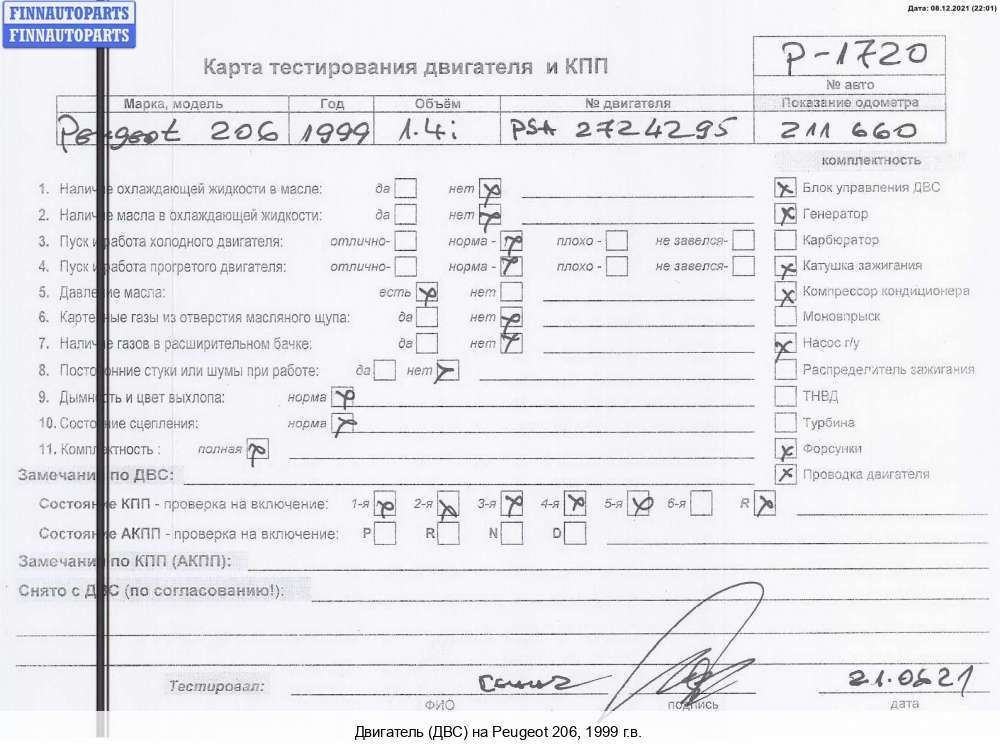 FINNAUTOPARTS
FINNAUTOPARTS
Дата: 08.12.2021 (22:01)
Карта тестирования двигателя и КПП
P-1720
№ авто
Марка, модель Год Объём № двигателя Показание одометра
Peugeot 206 1999 1.4i PSA 2724295 211 660
комплектность
1. Наличие охлаждающей жидкости в масле: да нет x
Блок управления ДВС x
2. Наличие масла в охлаждающей жидкости: да нет x
Генератор x
3. Пуск и работа холодного двигателя: отлично- норма - x плохо - не завелся-
Карбюратор
4. Пуск и работа прогретого двигателя: отлично- норма - x плохо - не завелся-
Катушка зажигания x
5. Давление масла: есть x нет
Компрессор кондиционера x
6. Картерные газы из отверстия масляного щупа: да нет x
Моновпрыск
7. Наличие газов в расширительном бачке: да нет x
Насос г/у x
8. Посторонние стуки или шумы при работе: да нет x
Распределитель зажигания
9. Дымность и цвет выхлопа: норма x
ТНВД
10. Состояние сцепления: норма x
Турбина
11. Комплектность : полная x
Форсунки x
Замечания по ДВС:
Проводка двигателя x
Состояние КПП - проверка на включение: 1-я x 2-я x 3-я x 4-я x 5-я x 6-я R x
Состояние АКПП - проверка на включение: P R N D
Замечания по КПП (АКПП):
Снято с ДВС (по согласованию!):
Тестировал: 21.0621
ФИО подпись дата
Двигатель (ДВС) на Peugeot 206, 1999 г.в.